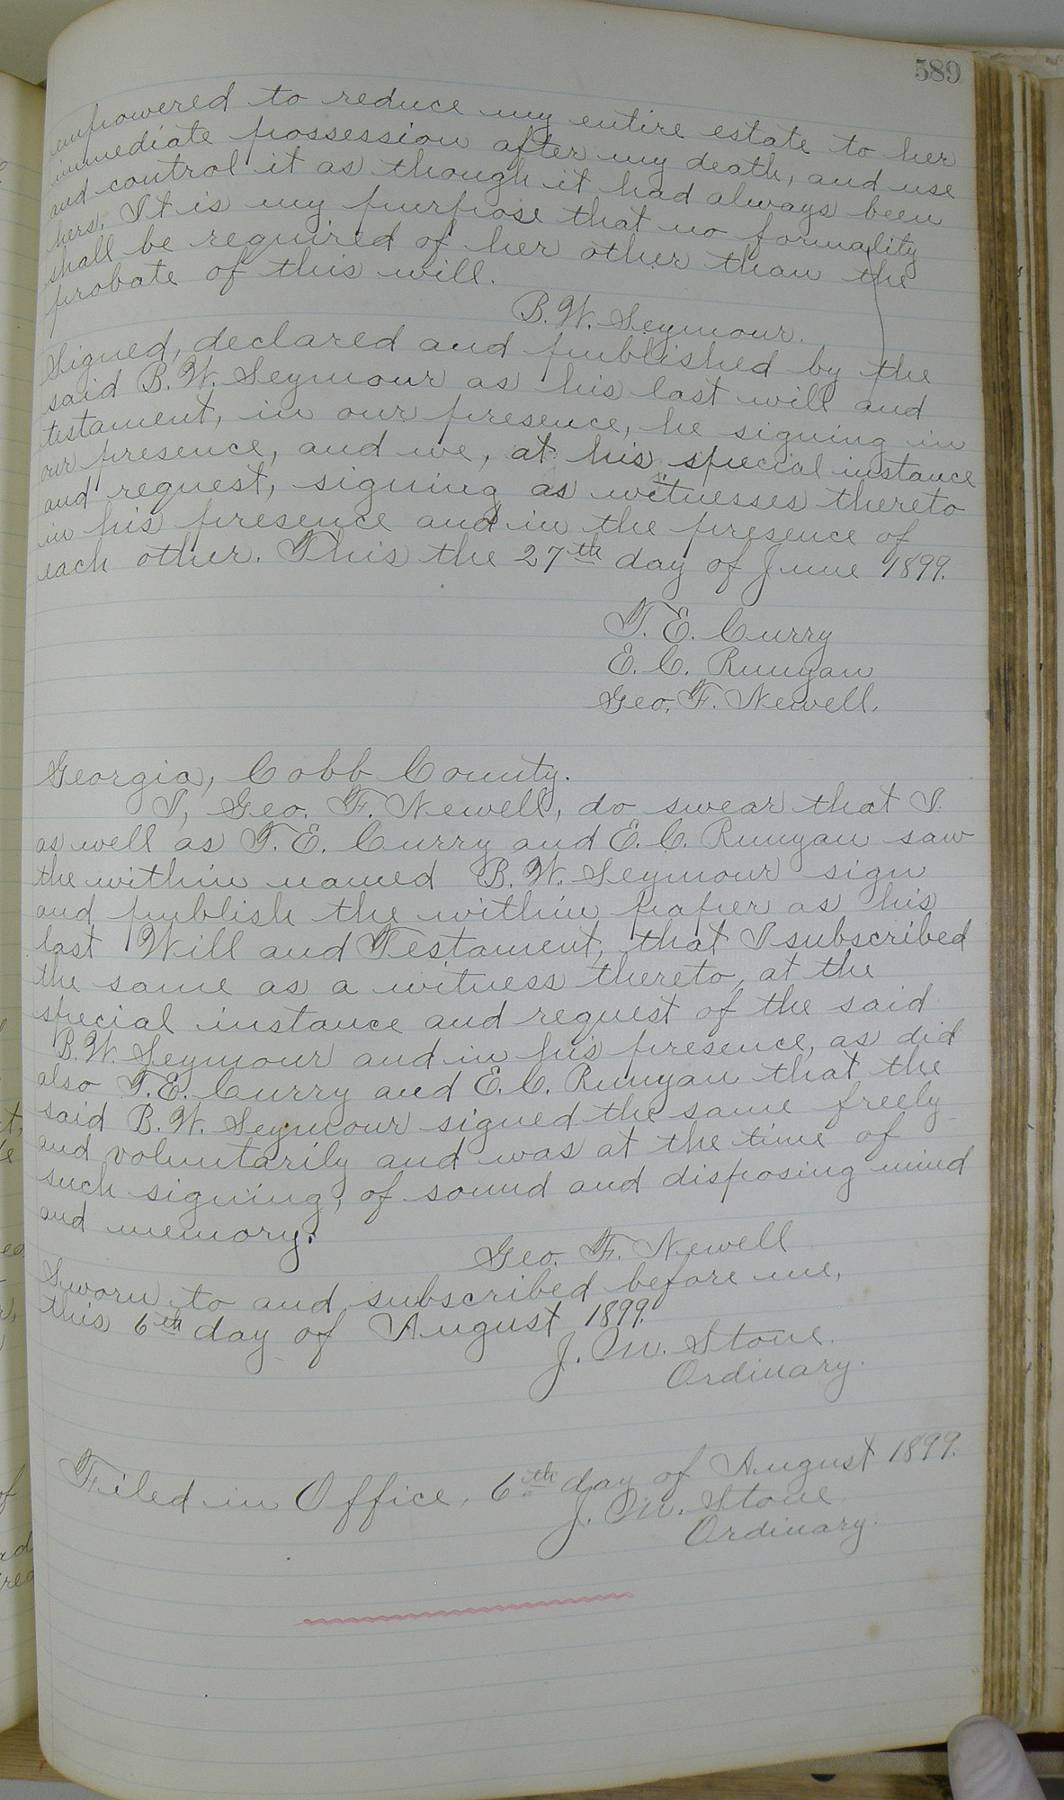 589
empowered to reduce my entire estate to her
immediate possession after my death, and use
and control it as though it had always been
hers. It is my purpose that no formality
shall be required of her other than the
probate of this will.
B. W. Seymour.
Signed, declared and published by the
said B. W. Seymour as his last will and
testament, in our presence, he signing in
our presence, and we, at his special instance
and request, signing as witnesses thereto
in his presence and in the presence of
each other. This the 27th day of June 1899.
T. E. Curry
E. C. Runyan
Geo. F. Newell.
Georgia, Cobb County.
I, Geo. F. Newell, do swear that I
as well as T. E. Curry and E. C. Runyan saw
the within named B. W. Seymour sign
and publish the within paper as his
last Will and Testament, that I subscribed
the same as a witness thereto, at the
special instance and request of the said
B. W. Seymour and in his presence, as did
also T. E. Curry and E. C. Runyan that the
said B. W. Seymour signed the same freely
and voluntarily and was at the time of
such signing, of sound and disposing mind
and memory.
Geo. F. Newell
Sworn to and subscribed before me,
this 6th day of August 1899.
J. M. Stone.
Ordinary.
Filed in Office, 6th day of August 1899.
J. M. Stone
Ordinary.